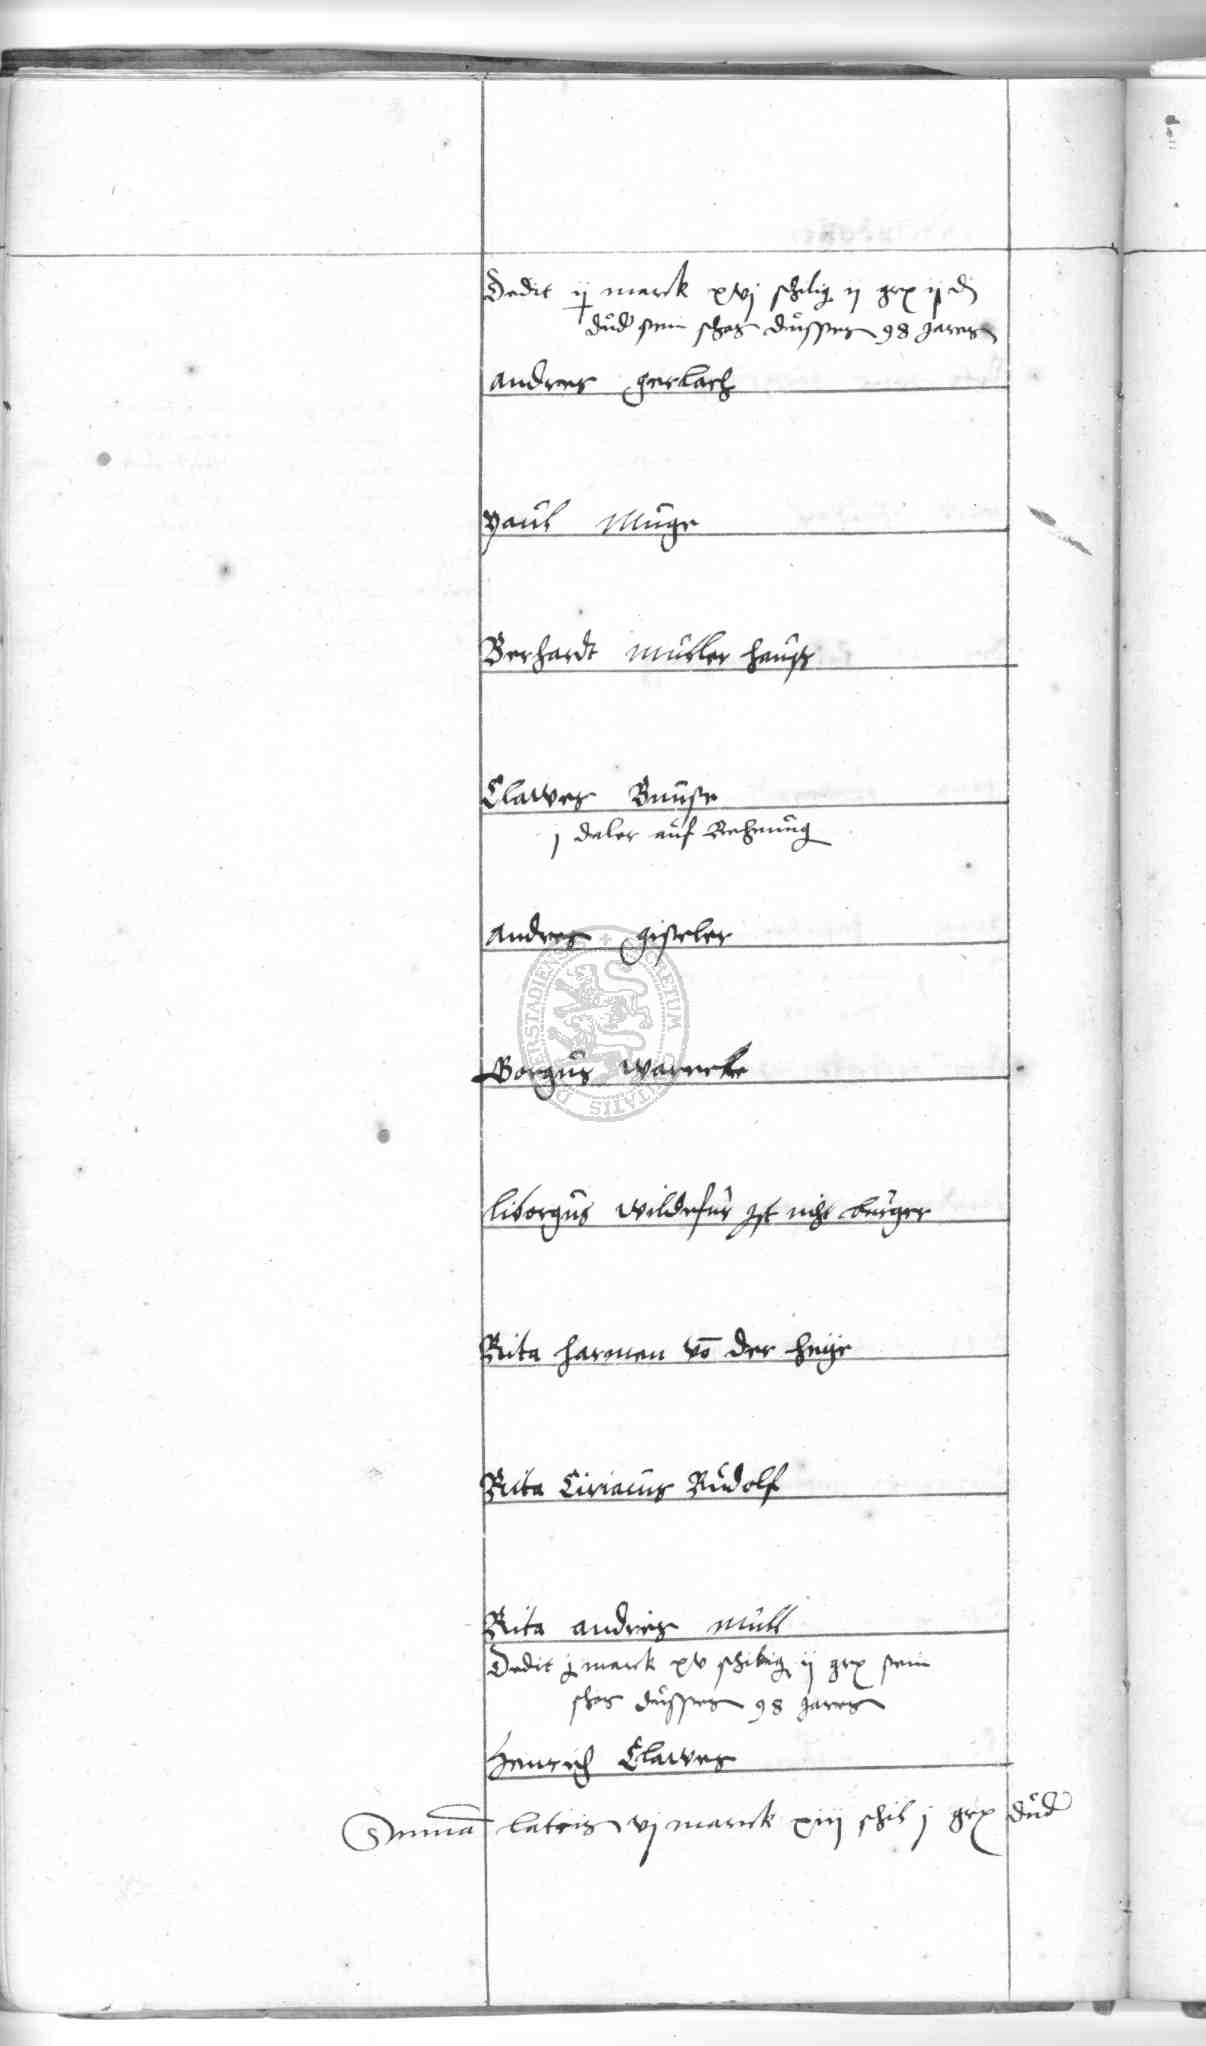 Dedit ij marck xvj schilig ij grx ij d
dud sein schos dusses 98 Jares
Andres Gerlach
Paul Muge
Berhardt Muller
Clawes
j daler auf Rechnung
Andres Giseler
Borgus Warneke
Liborgus Wildefur Ist nicht burger
Rita Harmen vo der Heije
Rita Ciriacus Rudolf
Rita Andreis Mull
Dedit marck xv schilig ij grx sein
schos dusses 98 Jares
Henrich Clawes
Suma lateris vj marck xiij schil j grx dud
DUDERSTADIENSIS SECRETUM CIVITATIS